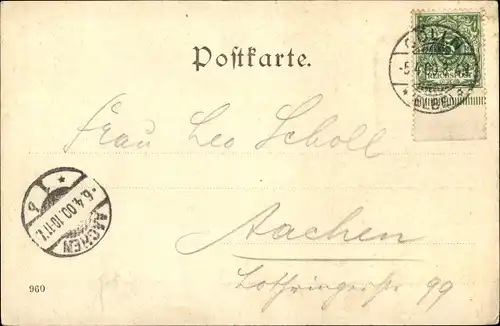 Postkarte.
CÖLN
-5.4.00.8-9N
Frau Leo Scholl
-6.4.00.10-11V.
AACHEN
Aachen
Lothringerstr 99
960